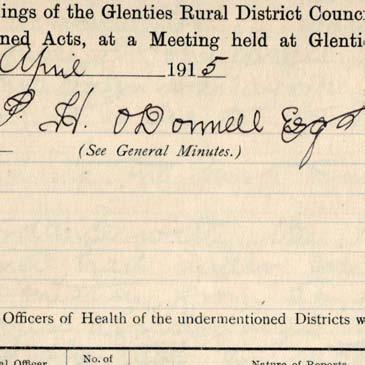 ings of the Glenties Rural District Counci
ned Acts, at a Meeting held at Glenti
April 1915
P. H. O'Donnell Esqr
(See General Minutes.)
Officers of Health of the undermentioned Districts w
al Officer
No. of
Nature of Reports